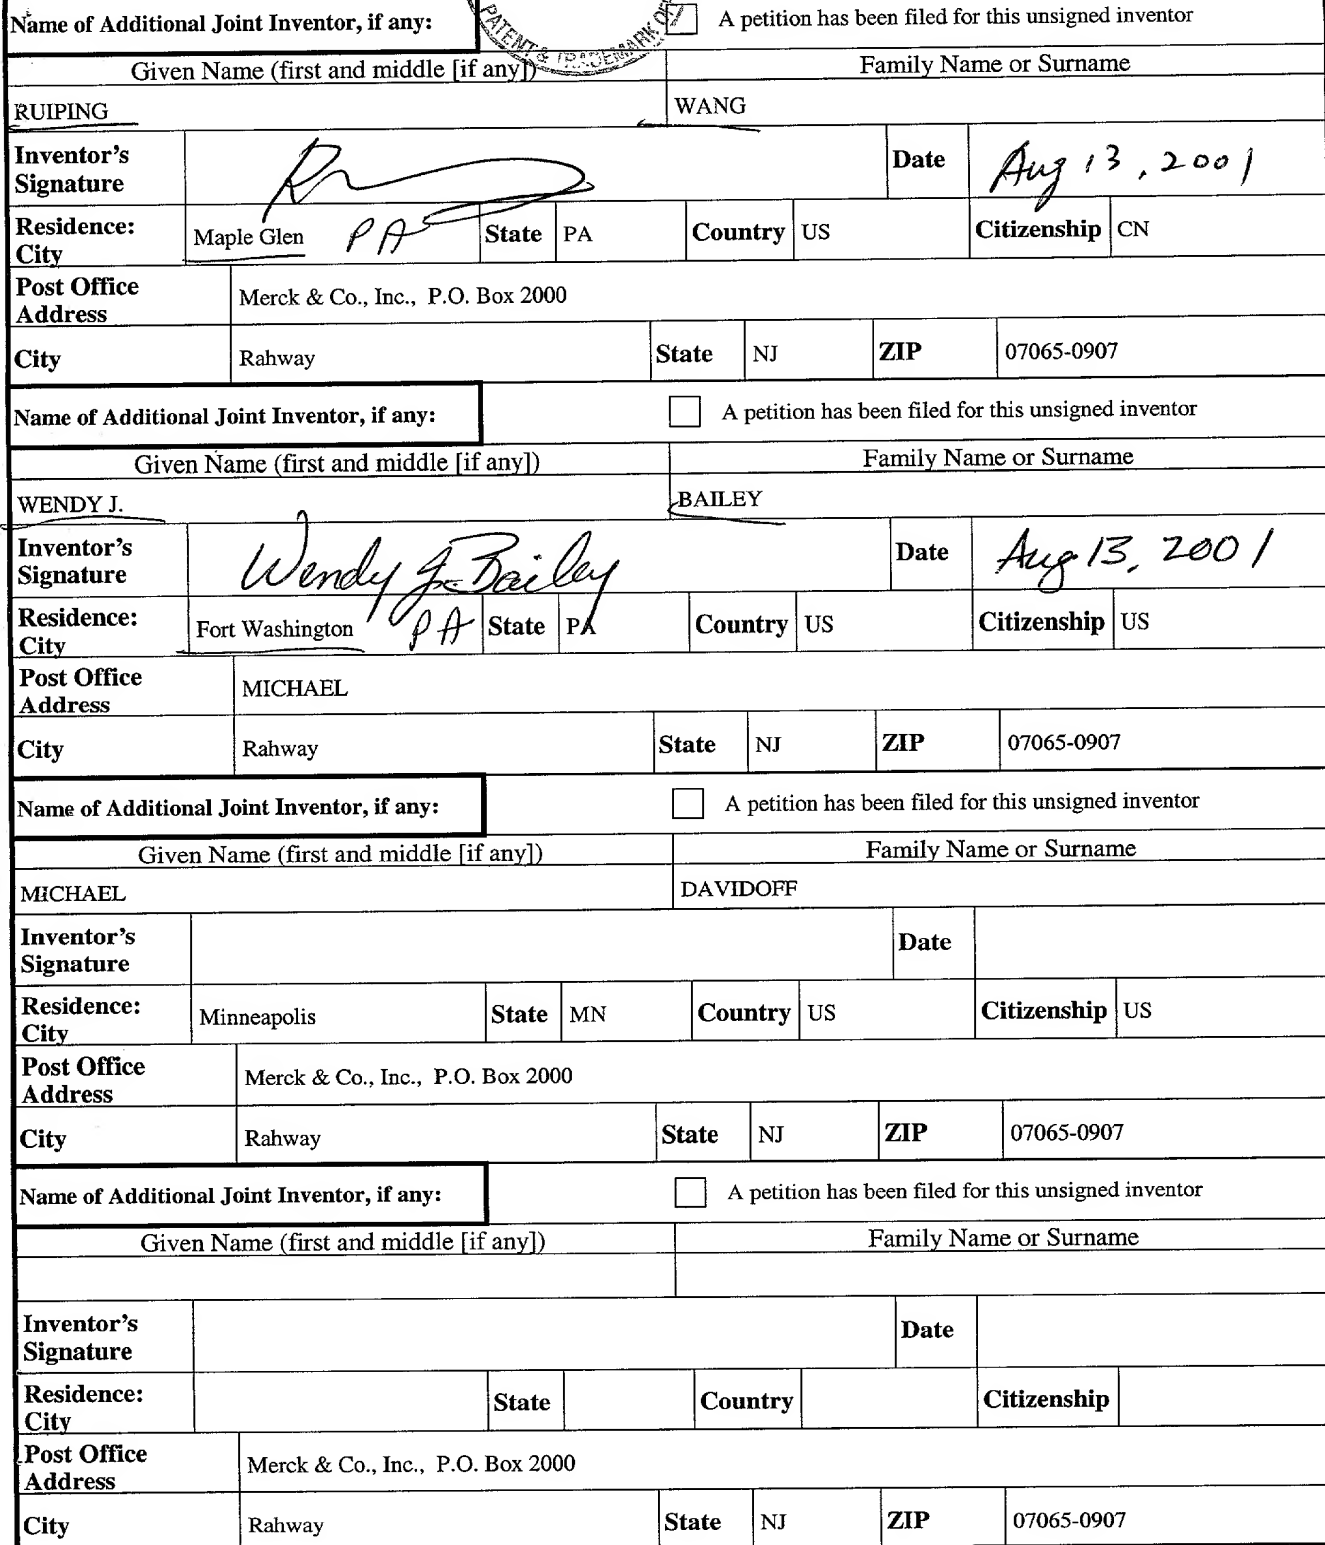 Name of Additional Joint Inventor, if any: A petition has been filed for this unsigned inventor
PATENT & TRADEMARK
Given Name (first and middle [if any]) Family Name or Surname
RUIPING WANG
Inventor's Signature Date Aug 13, 2001
Residence: City Maple Glen PA State PA Country US Citizenship CN
Post Office Address Merck & Co., Inc., P.O. Box 2000
City Rahway State NJ ZIP 07065-0907
Name of Additional Joint Inventor, if any: A petition has been filed for this unsigned inventor
Given Name (first and middle [if any]) Family Name or Surname
WENDY J. BAILEY
Inventor's Signature Wendy J. Bailey Date Aug 13, 2001
Residence: City Fort Washington PA State PA Country US Citizenship US
Post Office Address MICHAEL
City Rahway State NJ ZIP 07065-0907
Name of Additional Joint Inventor, if any: A petition has been filed for this unsigned inventor
Given Name (first and middle [if any]) Family Name or Surname
MICHAEL DAVIDOFF
Inventor's Signature Date
Residence: City Minneapolis State MN Country US Citizenship US
Post Office Address Merck & Co., Inc., P.O. Box 2000
City Rahway State NJ ZIP 07065-0907
Name of Additional Joint Inventor, if any: A petition has been filed for this unsigned inventor
Given Name (first and middle [if any]) Family Name or Surname
Inventor's Signature Date
Residence: City State Country Citizenship
Post Office Address Merck & Co., Inc., P.O. Box 2000
City Rahway State NJ ZIP 07065-0907